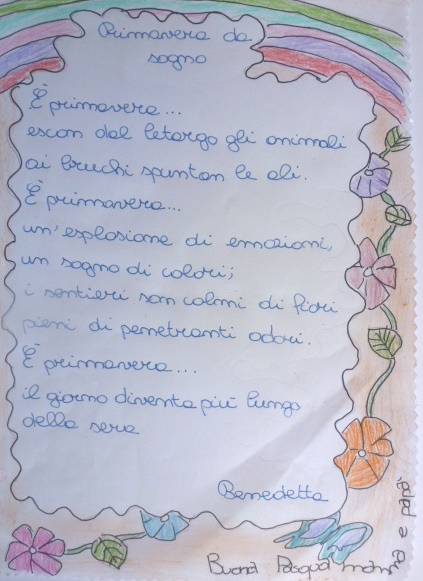 Primavera da
sogno
È primavera...
escon dal letargo gli animali
ai bruchi spuntan le ali.
È primavera...
un'esplosione di emozioni,
un sogno di colori;
i sentieri son colmi di fiori
pieni di penetranti odori.
È primavera...
il giorno diventa più lungo
della sera
Benedetta
Buona Pasqua mamma e papà